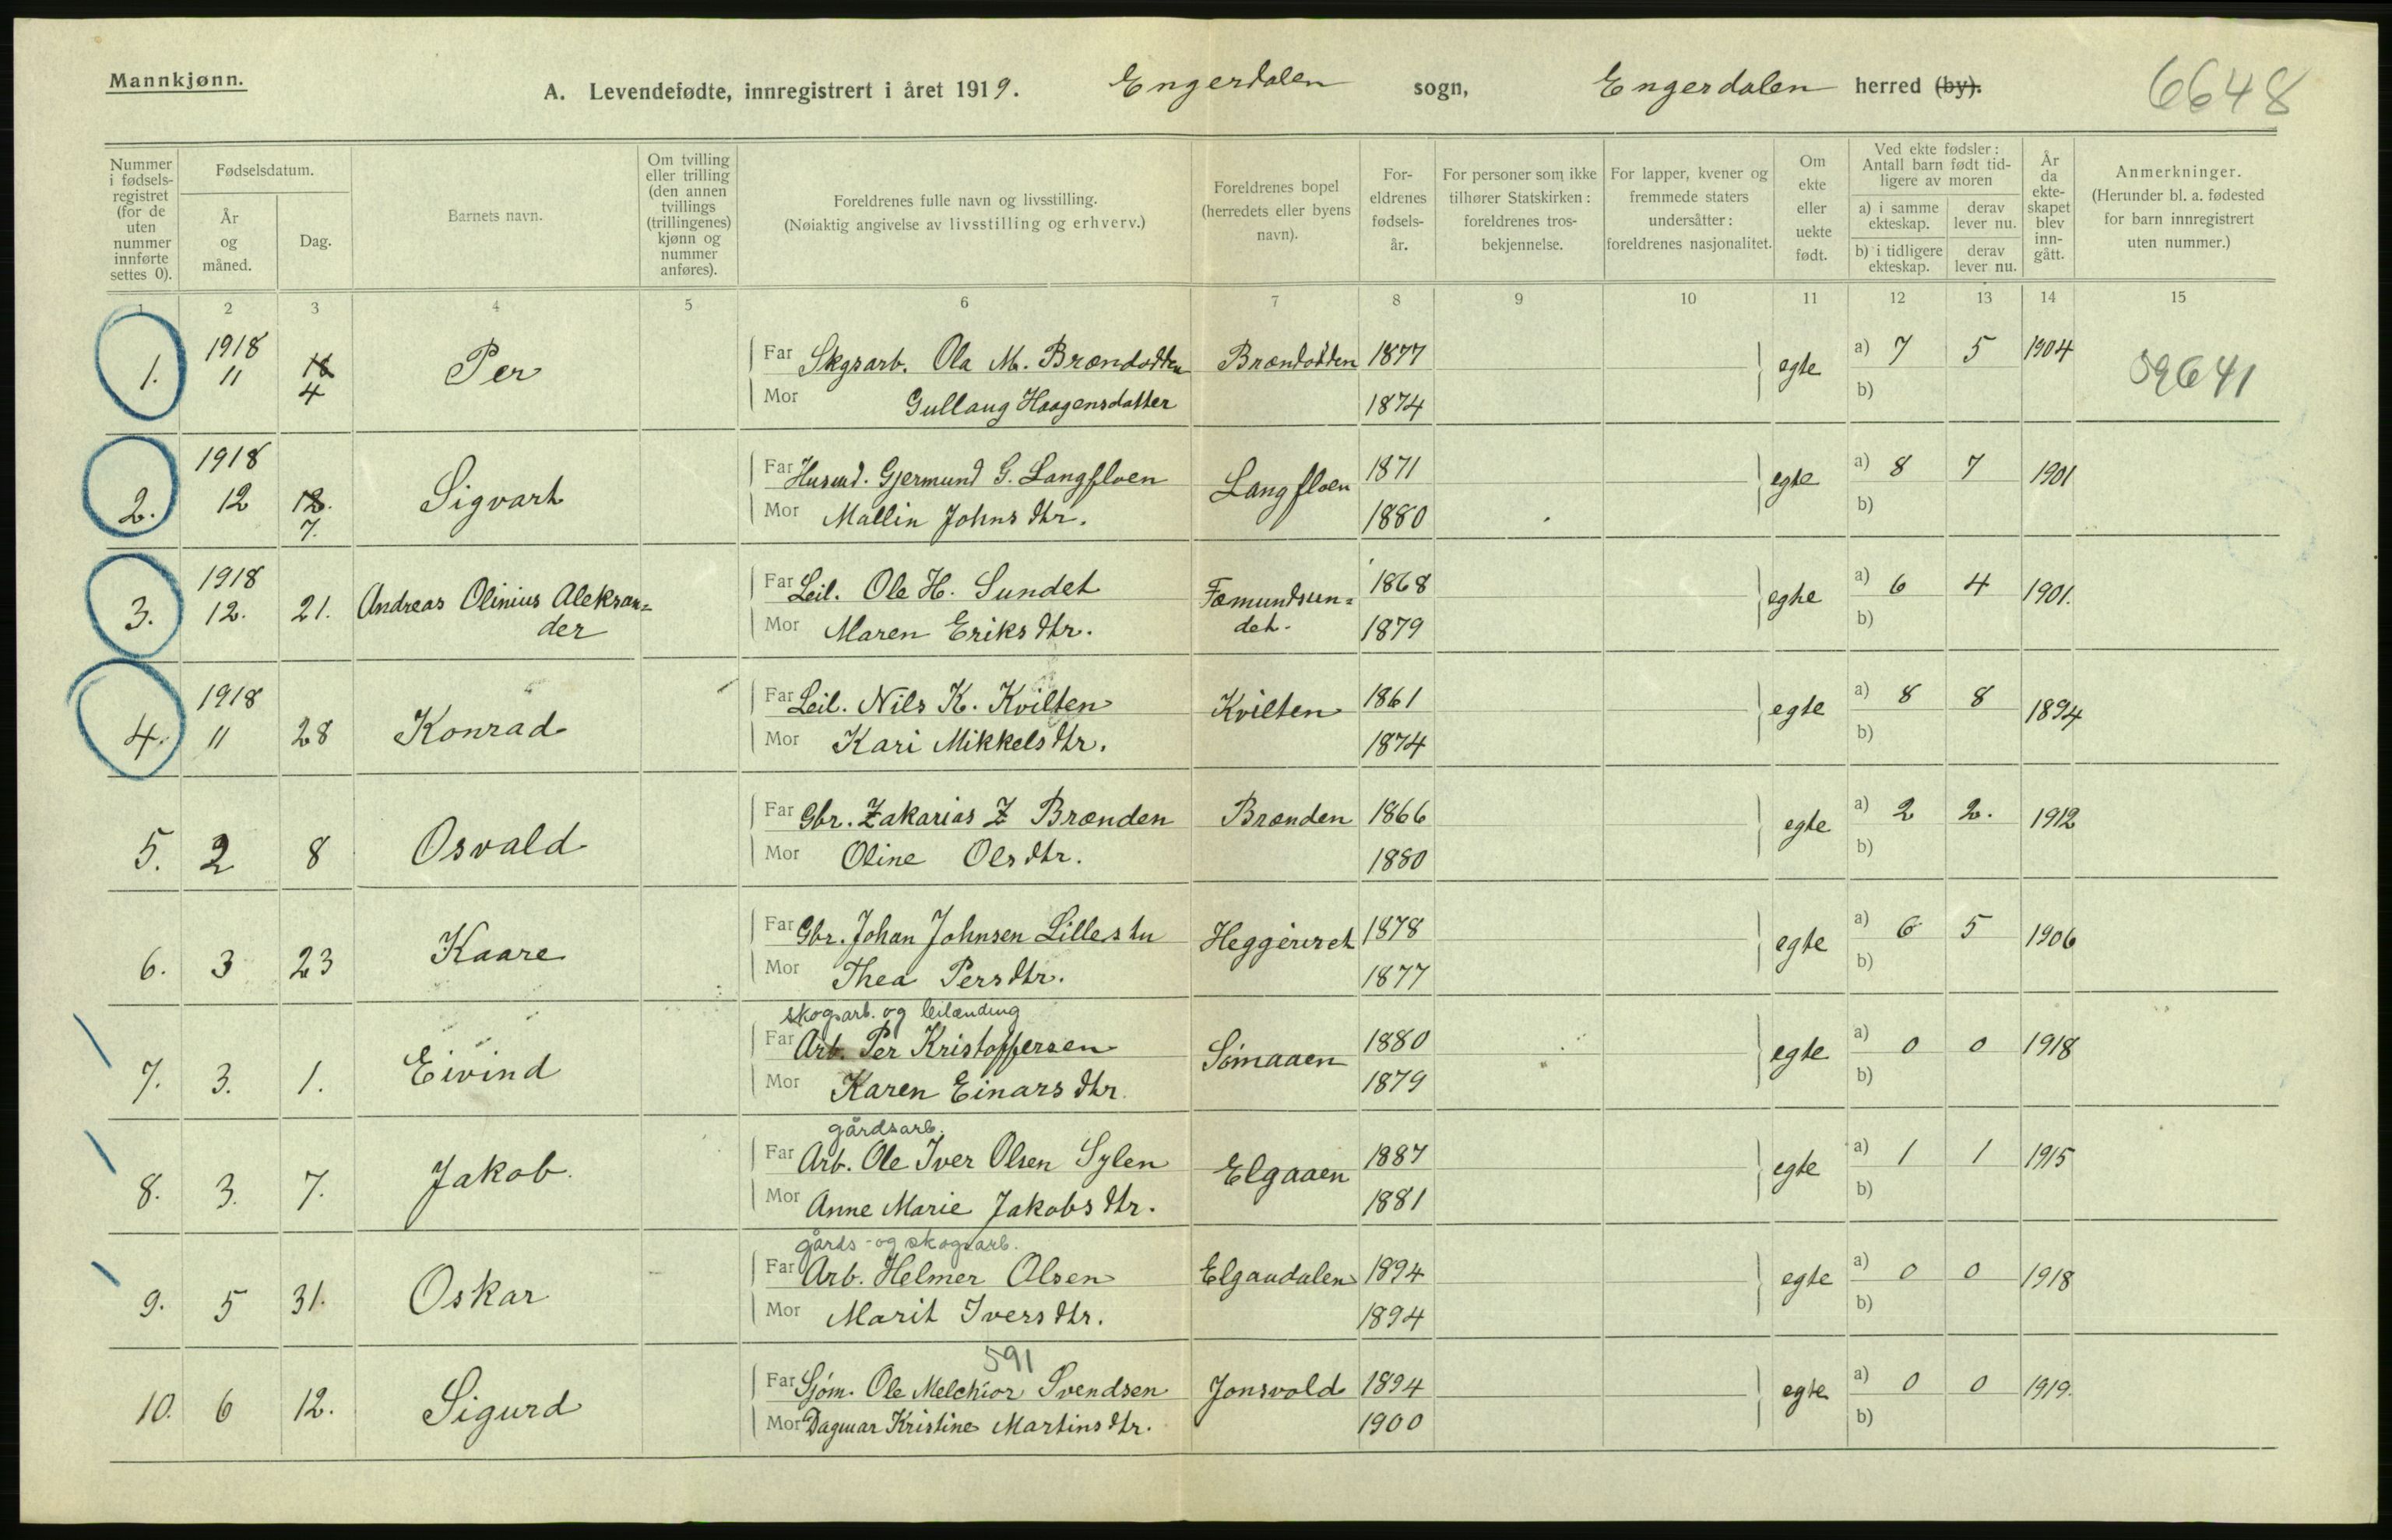 Mannkjønn.
A. Levendefødte, innregistrert i året 1919. Engerdalen sogn, Engerdalen herred (by).
6648
Nummer i fødsels-registret (for de uten nummer innførte settes 0).
Fødselsdatum.
År og måned.
Dag.
Barnets navn.
Om tvilling eller trilling (den annen tvillings (trillingenes) kjønn og nummer anføres).
Foreldrenes fulle navn og livsstilling.
(Nøiaktig angivelse av livsstilling og erhverv.)
Foreldrenes bopel (herredets eller byens navn).
For-eldrenes fødsels-år.
For personer som ikke tilhører Statskirken: foreldrenes tros-bekjennelse.
For lapper, kvener og fremmede staters undersåtter: foreldrenes nasjonalitet.
Om ekte eller uekte født.
Ved ekte fødsler: Antall barn født tid-ligere av moren
a) i samme ekteskap.
derav lever nu.
b) i tidligere ekteskap.
derav lever nu.
År da ekte-skapet blev inn-gått.
Anmerkninger.
(Herunder bl. a. fødested for barn innregistrert uten nummer.)
1 2 3 4 5 6 7 8 9 10 11 12 13 14 15
1. 1918 11 4 Per Far Skgsarb. Ola M. Brændodden Brændodden 1877 egte a) 7 5 1904
Mor Gullaug Haagensdatter 1874 b)
2. 1918 12 12. 7. Sigvart Far Husmd. Gjermund G. Langfloen Langfloen 1871 egte a) 8 7 1901
Mor Mallin Johnsdtr. 1880 b)
3. 1918 12. 21. Andreas Olinius Aleksan=der Far Leil. Ole H. Sundet Fæmundsun=det. 1868 egte a) 6 4 1901.
Mor Maren Eriksdtr. 1879 b)
4. 1918 11 28 Konrad Far Leil. Nils K. Kvilten Kvilten 1861 egte a) 8 8 1894
Mor Kari Mikkelsdtr. 1874 b)
5. 2 8 Osvald Far Gbr. Zakarias Z Brænden Brænden 1866 egte a) 2 2. 1912
Mor Oline Olsdtr. 1880 b)
6. 3 23 Kaare Far Gbr. Johan Johnsen Lillestu Heggeriset 1878 egte a) 6 5 1906
Mor Thea Persdtr. 1877 b)
skogsarb. og leilænding
7. 3. 1. Eivind Far Arb. Per Kristoffersen Sømaaen 1880 egte a) 0 0 1918
Mor Karen Einarsdtr. 1879 b)
gårdsarb.
8. 3. 7. Jakob. Far Arb. Ole Iver Olsen Sylen Elgaaen 1887 egte a) 1 1 1915
Mor Anne Marie Jakobsdtr. 1881 b)
gårds- og skogsarb.
9. 5 31. Oskar Far Arb. Helmer Olsen Elgaadalen 1894 egte a) 0 0 1918
Mor Marit Iversdtr. 1894 b)
591
10. 6 12. Sigurd Far Sjøm. Ole Melchior Svendsen Jonsvold 1894 egte a) 0 0 1919.
Mor Dagmar Kristine Martinsdtr. 1900 b)